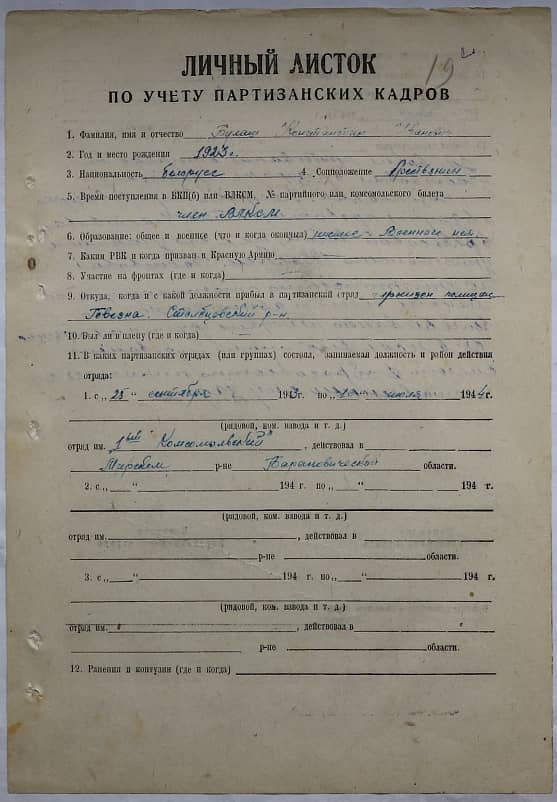 19
ЛИЧНЫЙ ЛИСТОК
ПО УЧЕТУ ПАРТИЗАНСКИХ КАДРОВ
1. Фамилия, имя и отчество Константин
2. Год и место рождения 1923 г.
3. Национальность белорусс 4. Соцположение
5. Время поступления в ВКП(б) или ВЛКСМ, № партийного или, комсомольского билета
член ВЛКСМ
6. Образование: общее и военное (что и когда окончил) Военного нет.
7. Каким РВК и когда призван в Красную Армию
8. Участие на фронтах (где и когда)
9. Откуда, когда и с какой должности прибыл в партизанский отряд
Столбцовский р-н.
10. Был ли в плену (где и когда)
11. В каких партизанских отрядах (или группах) состоял, занимаемая должность и район действия
отряда:
1. с „25 “ сентября 1943г. по „ “ июля 1944г.
(рядовой, ком. взвода и т. д.)
отряд им. "Комсомольский" , действовал в
Мирском р-не Барановической области.
2. с „ “ 194 г. по „ “ 194 г.
(рядовой, ком. взвода и т. д.)
отряд им. , действовал в
р-не области.
3. с „ “ 194 г. по „ “ 194 г.
(рядовой, ком. взвода и т. д.)
отряд им. , действовал в
р-не области.
12. Ранения и контузии (где и когда)